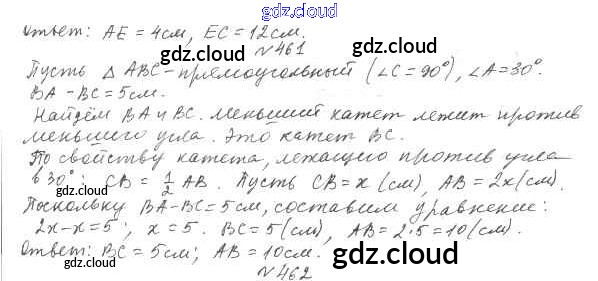 gdz.cloud
Ответ: AE = 4см, EC = 12см.
gdz.cloud gdz.cloud
№461
Пусть △ ABC – прямоугольный (∠C = 90°), ∠A = 30°.
BA - BC = 5см. gdz.cloud gdz.cloud
Найдём BA и BC. Меньший катет лежит против
меньшего угла. Это катет BC.
По свойству катета, лежащего против угла
в 30°: CB = 1/2 AB. Пусть CB = x (см), AB = 2x (см).
gdz.cloud gdz.cloud
Поскольку BA - BC = 5см, составим уравнение:
2x - x = 5; x = 5. BC = 5 (см), AB = 2·5 = 10 (см).
Ответ: BC = 5см; AB = 10см.
gdz.cloud gdz.cloud
№462